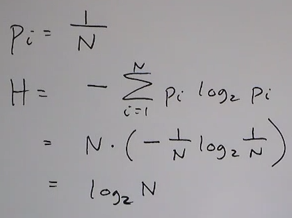 pi = 1/N
H = - ∑_{i=1}^{N} pi log₂ pi
= N · (- 1/N log₂ 1/N)
= log₂ N